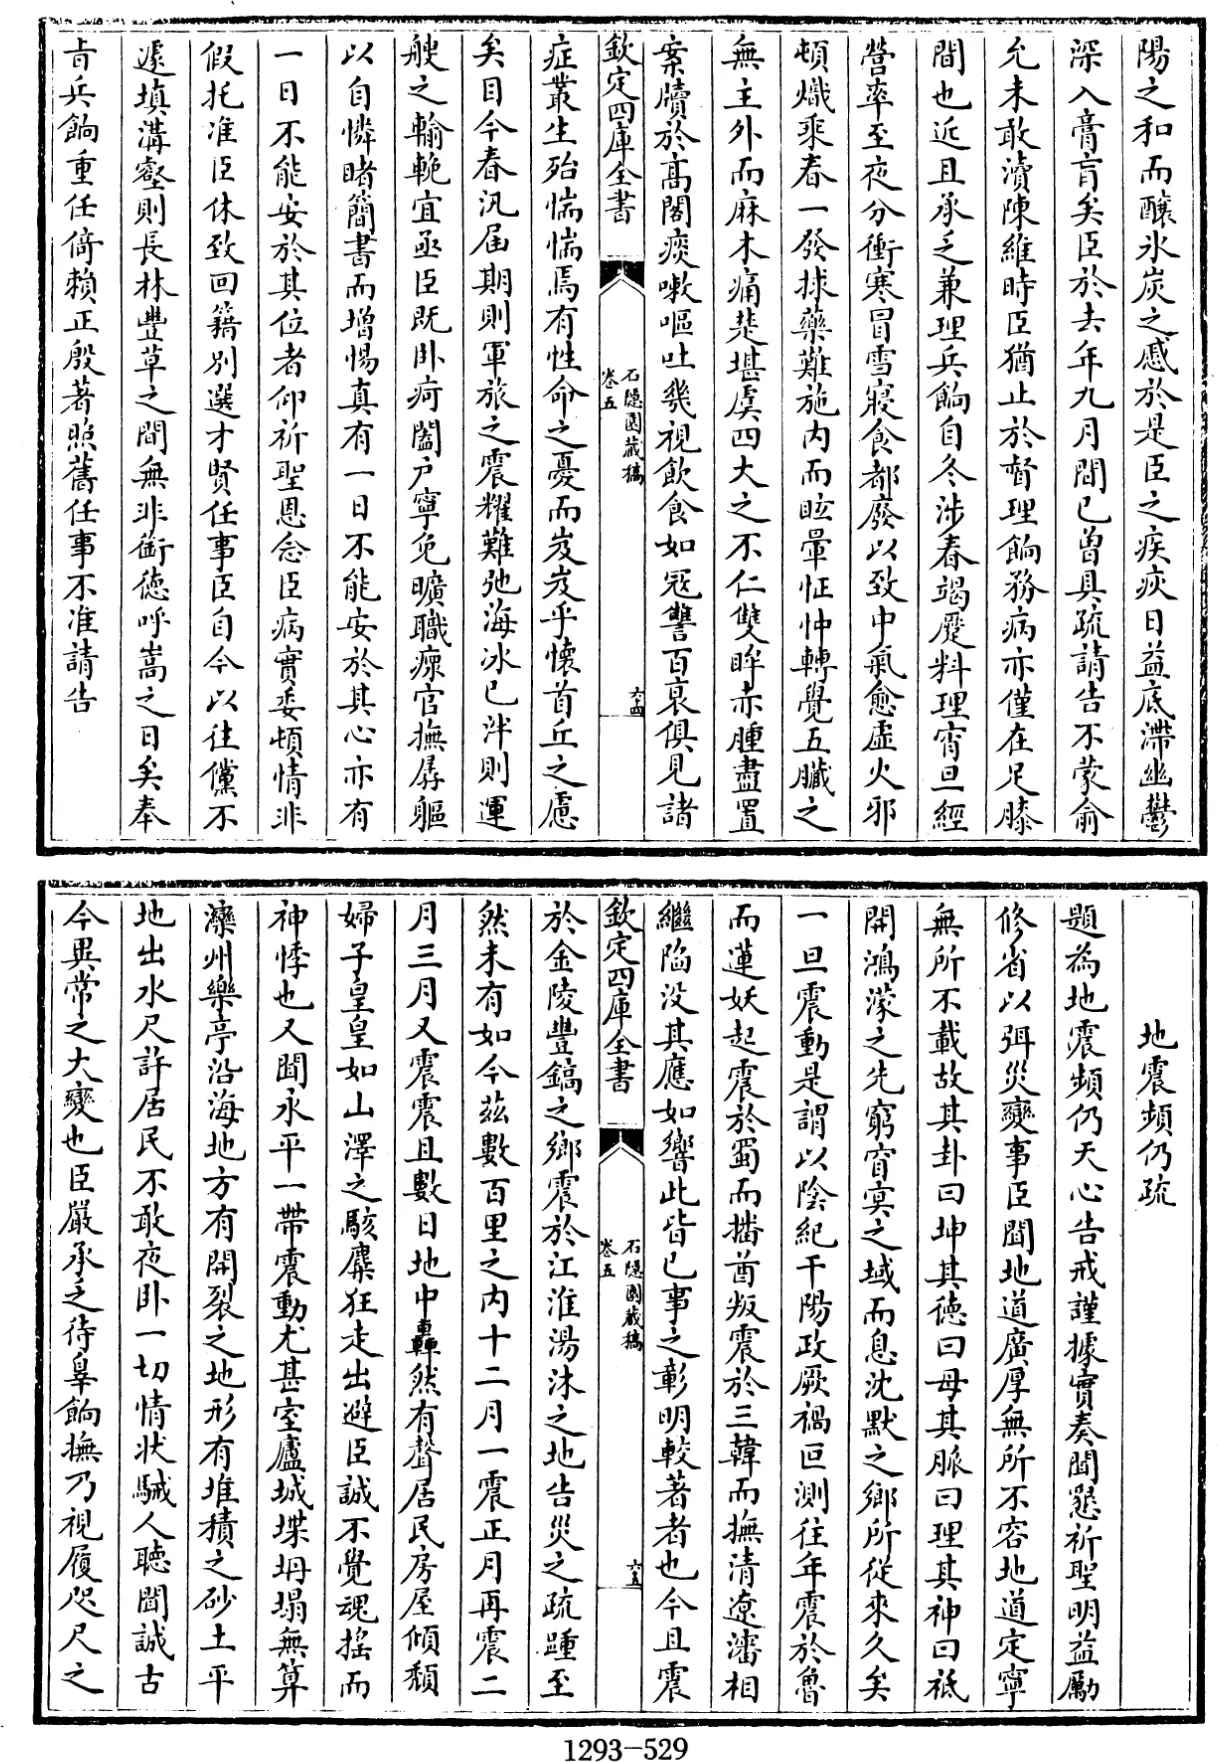 陽之和而釀氷炭之慼於是臣之疾疢日益底滯幽鬱
深入膏肓矣臣於去年九月間已曽具疏請告不蒙俞
允未敢瀆陳維時臣猶止於督理餉務病亦僅在足膝
間也近且承乏兼理兵餉自冬涉春竭蹷料理宵旦經
營率至夜分衝寒冒雪寢食都廢以致中氣愈虚火邪
頓熾乘春一發捄藥難施内而眩暈怔忡轉覺五臟之
無主外而麻木痛楚堪虞四大之不仁雙眸赤腫盡置
案牘於髙閣痰嗽嘔吐幾視飲食如冦讐百衰俱見諸
欽定四庫全書
石隠園藏稿
卷五
六十四
症叢生殆惴惴焉有性命之憂而岌岌乎懷首丘之慮
矣目今春汛届期則軍旅之震耀難弛海冰已泮則運
艘之輸輓宜亟臣既卧疴闔户寧免曠職瘝官撫孱軀
以自憐睹簡書而增惕真有一日不能安於其心亦有
一日不能安於其位者仰祈聖恩念臣病實委頓情非
假托准臣休致回籍别選才賢任事臣自今以往儻不
遽填溝壑則長林豐草之間無非銜徳呼嵩之日矣奉
㫖兵餉重任倚賴正殷著照舊任事不准請告
地震頻仍疏
題為地震頻仍天心告戒謹據實奏聞懇祈聖明益勵
修省以弭災變事臣聞地道廣厚無所不容地道定寧
無所不載故其卦曰坤其徳曰母其脈曰理其神曰祗
開鴻濛之先窮窅㝠之域而息沈默之鄉所從來久矣
一旦震動是謂以陰紀干陽政厥禍叵測往年震於魯
而蓮妖起震於蜀而播酋叛震於三韓而撫清遼瀋相
繼陷没其應如響此皆已事之彰明較著者也今且震
欽定四庫全書
石隠園藏稿
卷五
六十五
於金陵豐鎬之鄉震於江淮湯沐之地告災之疏踵至
然未有如今兹數百里之内十二月一震正月再震二
月三月又震震且數日地中轟然有聲居民房屋傾頽
婦子皇皇如山澤之駭麋狂走出避臣誠不覺魂揺而
神悸也又聞永平一帶震動尤甚室廬城堞坍塌無算
灤州樂亭沿海地方有開裂之地形有堆積之砂土平
地出水尺許居民不敢夜卧一切情状駴人聴聞誠古
今異常之大變也臣嚴承之待辠餉撫乃視履咫尺之
1293-529